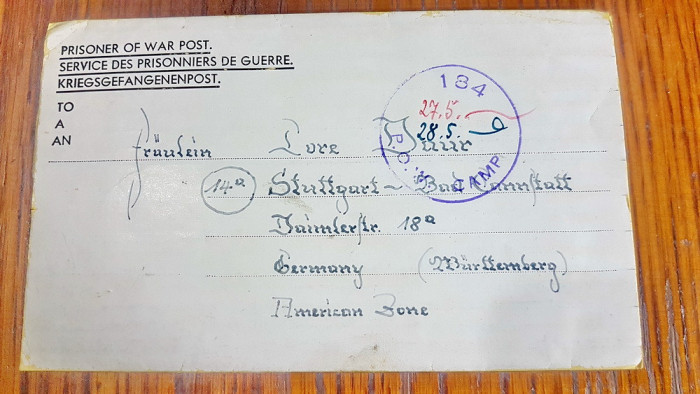 PRISONER OF WAR POST.
SERVICE DES PRISONNIERS DE GUERRE.
KRIEGSGEFANGENENPOST.
TO
A
AN
184
P.O.W. CAMP
27.5.
28.5.
Fräulein Lore
14a Stuttgart - Bad Cannstatt
Daimlerstr. 18a
Germany (Württemberg)
American Zone